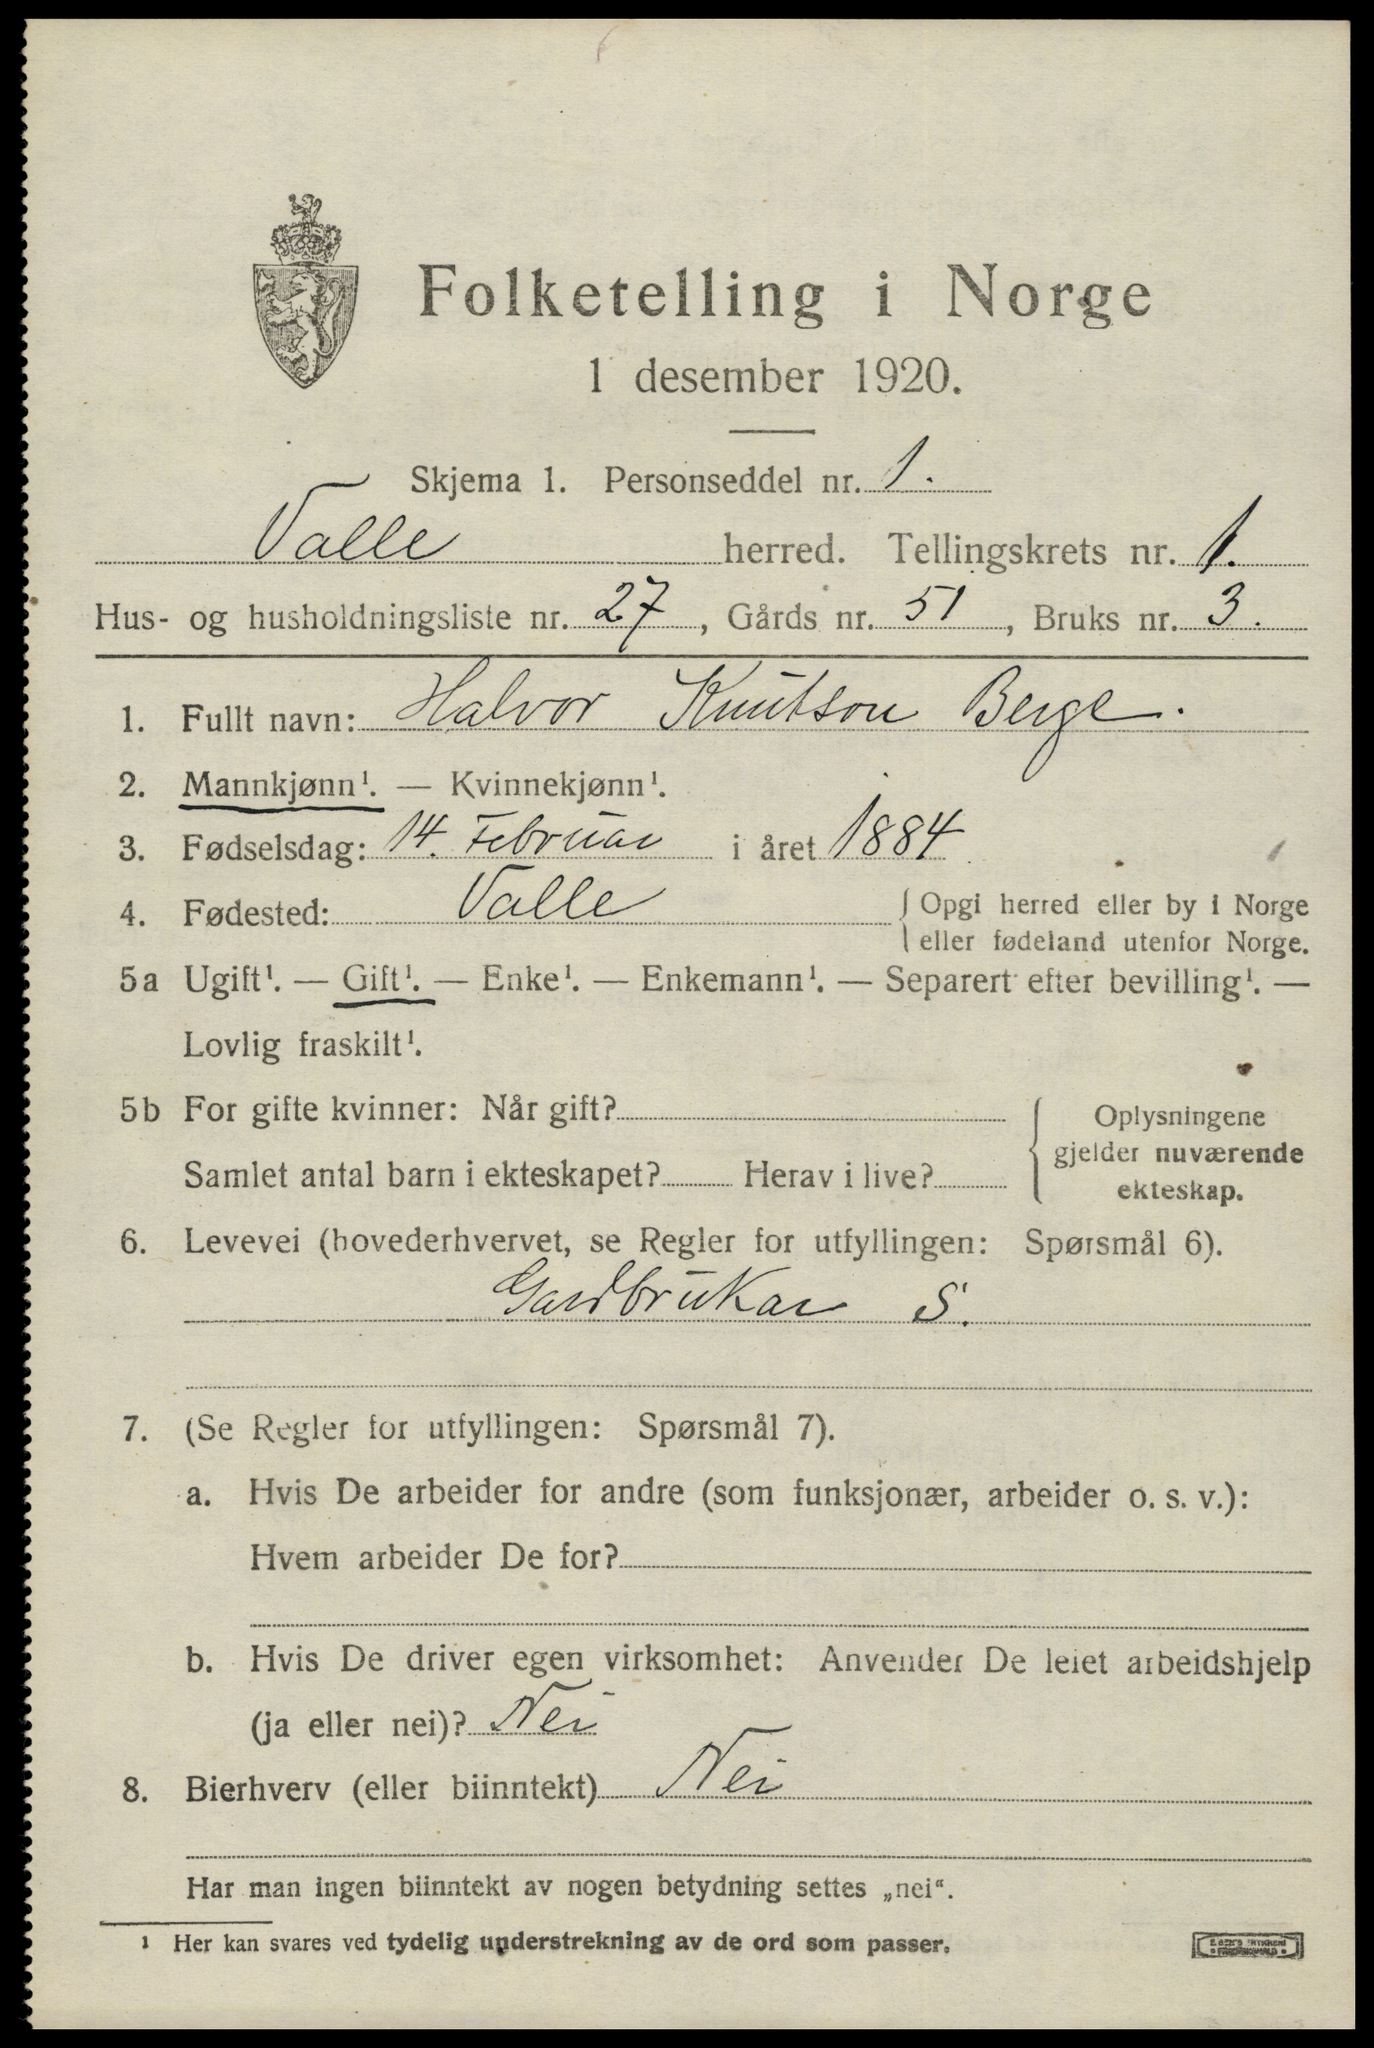 Folketelling i Norge
1 desember 1920.
Skjema 1. Personseddel nr. 1.
Valle herred. Tellingskrets nr. 1.
Hus- og husholdningsliste nr. 27, Gårds nr. 51, Bruks nr. 3.
1. Fullt navn: Halvor Knutson Berge.
2. Mannkjønn¹. — Kvinnekjønn¹.
3. Fødselsdag: 14. Februar i året 1884
4. Fødested: Valle { Opgi herred eller by i Norge
eller fødeland utenfor Norge.
5a Ugift¹. — Gift¹. — Enke¹. — Enkemann¹. — Separert efter bevilling¹. —
Lovlig fraskilt¹.
5b For gifte kvinner: Når gift? { Oplysningene
gjelder nuværende
Samlet antal barn i ekteskapet? Herav i live?
ekteskap.
6. Levevei (hovederhvervet, se Regler for utfyllingen: Spørsmål 6).
Gardbrukar S.
7. (Se Regler for utfyllingen: Spørsmål 7).
a. Hvis De arbeider for andre (som funksjonær, arbeider o. s. v.):
Hvem arbeider De for?
b. Hvis De driver egen virksomhet: Anvender De leiet arbeidshjelp
(ja eller nei)? Nei
8. Bierhverv (eller biinntekt) Nei
Har man ingen biinntekt av nogen betydning settes „nei“.
¹ Her kan svares ved tydelig understrekning av de ord som passer.